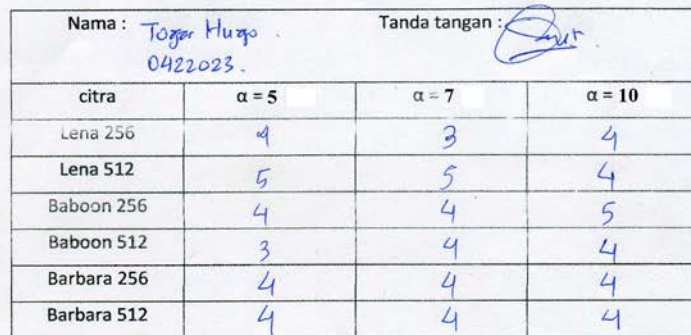 Nama : Togar Hugo. Tanda tangan :
0422023.
citra α = 5 α = 7 α = 10
Lena 256 4 3 4
Lena 512 5 5 4
Baboon 256 4 4 5
Baboon 512 3 4 4
Barbara 256 4 4 4
Barbara 512 4 4 4